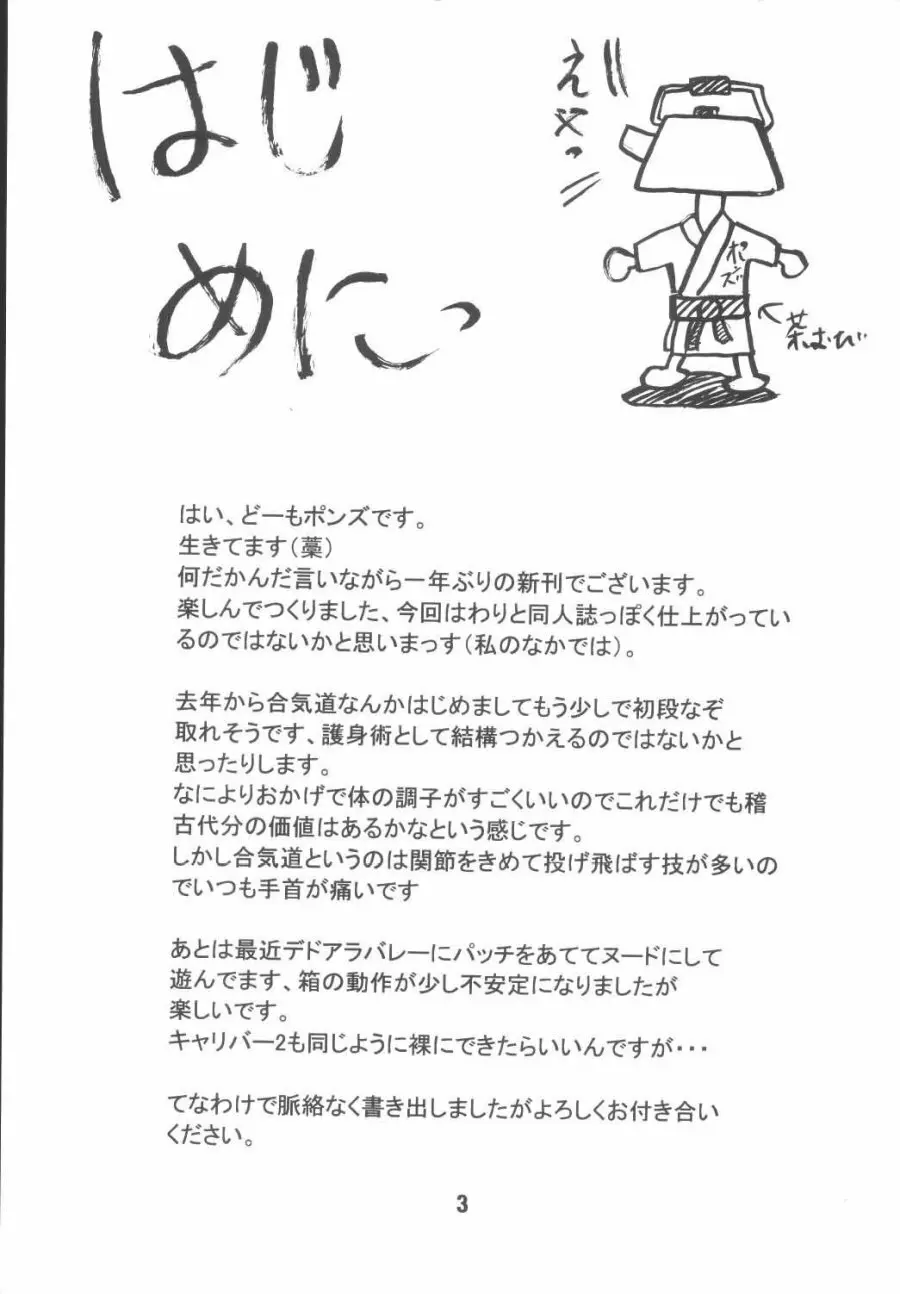 はじ
めにっ
えいっ
ポンズ
茶おび
はい、どーもポンズです。
生きてます(藁)
何だかんだ言いながら一年ぶりの新刊でございます。
楽しんでつくりました、今回はわりと同人誌っぽく仕上がってい
るのではないかと思いまっす(私のなかでは)。
去年から合気道なんかはじめましてもう少しで初段なぞ
取れそうです、護身術として結構つかえるのではないかと
思ったりします。
なによりおかげで体の調子がすごくいいのでこれだけでも稽
古代分の価値はあるかなという感じです。
しかし合気道というのは関節をきめて投げ飛ばす技が多いの
でいつも手首が痛いです
あとは最近デドアラバレーにパッチをあててヌードにして
遊んでます、箱の動作が少し不安定になりましたが
楽しいです。
キャリバー2も同じように裸にできたらいいんですが・・・
てなわけで脈絡なく書き出しましたがよろしくお付き合い
ください。
3